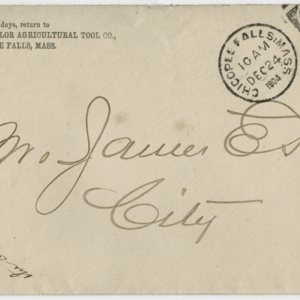 days, return to
LOR AGRICULTURAL TOOL CO.,
E FALLS, MASS.
CHICOPEE FALLS, MASS
10 AM
DEC 24
1904
James Es
City